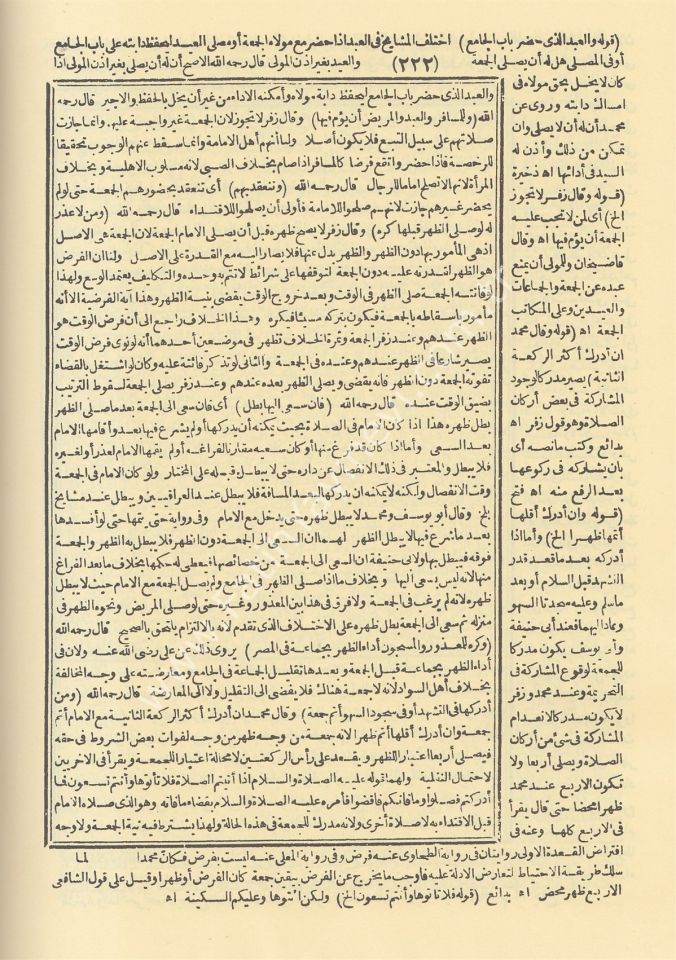 (قوله والعبد الذى حضر باب الجامع) اختلف المشايخ فى العبد اذا حضر مع مولاه الجمعة أو مصلى العيد ليحفظ دابته على باب الجامع
أو فى المصلى هل له أن يصلى الجمعة (٢٢٢) والعيد بغير اذن المولى قال رحمه الله الاصح أن له أن يصلى بغير اذن المولى اذا
كان لا يخل بحق مولاه فى
امساك دابته وروى عن
محمد أن له أن لا يصلى وان
تمكن من ذلك وأذن له
السيد فى أدائها اه ذخيرة
(قوله وقال زفر لا تجوز
الخ) أى لمن لا تجب عليه
الجمعة أن يؤم فيها اه وقال
قاضيخان وللمولى أن يمنع
عبده عن الجمعة والجماعات
والعيدين وعلى المكاتب
الجمعة اه (قوله وقال محمد
ان أدرك أكثر الركعة
الثانية) يصير مدركا لوجود
المشاركة فى بعض أركان
الصلاة وهو قول زفر اه
بدائع وكتب ما نصه أى
بأن يشاركه فى ركوعها
بعد الرفع منه اه فتح
(قوله وان أدرك أقلها
أتمها ظهرا الخ) وأما اذا
أدركه بعد ما قعد قدر
التشهد قبل السلام أو بعد
ما سلم وعليه سجدتا السهو
وعاد اليهما فعند أبى حنيفة
وأبو يوسف يكون مدركا
للجمعة لوقوع المشاركة فى
التحريمة وعند محمد وزفر
لا يكون مدركا لانعدام
المشاركة فى شئ من أركان
الصلاة ويصلى أربعا ولا
تكون الاربع عند محمد
ظهرا محضا حتى قال يقرأ
فى الاربع كلها وعنه فى
والعبد الذى حضر باب الجامع ليحفظ دابة مولاه وأمكنه الاداء من غير أن يخل بالحفظ والاجير قال رحمه
الله (وللمسافر والعبد والمريض أن يؤم فيها) وقال زفر لا تجوز لان الجمعة غير واجبة عليهم وانما جازت
صلاتهم على سبيل التبع فلا يكون أصلا ولنا أنهم أهل الامامة وانما سقط عنهم الوجوب تحقيقا
للرخصة فاذا حضروا تقع فرضا كالمسافر اذا صام بخلاف الصبى لانه مسلوب الاهلية وبخلاف
المرأة لانها لا تصلح اماما للرجال قال رحمه الله (وتنعقد بهم) أى تنعقد بحضورهم الجمعة حتى لو لم
يحضر غيرهم جازت لانهم صلحوا للامامة فأولى أن يصلحوا للاقتداء قال رحمه الله (ومن لا عذر
له لو صلى الظهر قبلها كره) وقال زفر لا يصح ظهره قبل أن يصلى الامام الجمعة لان الجمعة هى الاصل
اذ هى المأمور بها دون الظهر والظهر بدل عنها فلا يصار اليه مع القدرة على الاصل ولنا ان الفرض
هو الظهر لقدرته عليه دون الجمعة لتوقفها على شرائط لا تتم به وحده والتكليف يعتمد الوسع ولهذا
لو فاتته الجمعة صلى الظهر فى الوقت وبعد خروج الوقت يقضى بنية الظهر وهذا آية الفرضية الا أنه
مأمور باسقاطه بالجمعة فيكون بتركه مسيئا فيكره وهذا الخلاف راجع الى أن فرض الوقت هو
الظهر عندهم وعند زفر الجمعة وثمرة الخلاف تظهر فى موضعين أحدهما أنه لو نوى فرض الوقت
يصير شارعا فى الظهر عندهم وعنده فى الجمعة والثانى لو تذكر فائتة عليه وكان لو اشتغل بالقضاء
تفوته الجمعة دون الظهر فانه يقضى ويصلى الظهر بعده عندهم وعند زفر يصلى الجمعة لسقوط الترتيب
بضيق الوقت عنده قال رحمه الله (فان سعى اليها بطل) أى فان سعى الى الجمعة بعد ما صلى الظهر
بطل ظهره هذا اذا كان الامام فى الصلاة بحيث يمكنه أن يدركها أو لم يشرع فيها بعد وأقامها الامام
بعد السعى وأما اذا كان قد فرغ منها أو كان سعيه مقارنا لفراغه أو لم يقمها الامام لعذر أو لغيره
فلا يبطل والمعتبر فى ذلك الانفصال عن داره حتى لا يبطل قبله على المختار ولو كان الامام فى الجمعة
وقت الانفصال ولكنه لا يمكنه أن يدركها لبعد المسافة فلا يبطل عند العراقيين ويبطل عند مشايخ
بلخ وقال أبو يوسف ومحمد لا يبطل ظهره حتى يدخل مع الامام وفى رواية حتى يتمها حتى لو أفسدها
بعد ما شرع فيها لا يبطل الظهر لهما ان السعى الى الجمعة دون الظهر فلا يبطل به الظهر والجمعة
فوقه فيبطل بها ولابى حنيفة ان السعى الى الجمعة من خصائصها فيعطى له حكمها بخلاف ما بعد الفراغ
منها لانه ليس بسعى اليها وبخلاف ما اذا صلى الظهر فى الجامع ولم يصل الجمعة مع الامام حيث لا يبطل
ظهره لانه لم يرغب فى الجمعة ولا فرق فى هذا بين المعذور وغيره حتى لو صلى المريض ونحوه الظهر فى
منزله ثم سعى الى الجمعة بطل ظهره على الاختلاف الذى تقدم لانه بالالتزام يلتحق بالصحيح قال رحمه الله
(وكره للمعذور والمسجون أداء الظهر بجماعة فى المصر) يروى ذلك عن على رضى الله عنه ولان فى
أداء الظهر بجماعة قبل الجمعة وبعدها تقليل الجماعة فى الجامع ومعارضته على وجه المخالفة
بخلاف أهل السواد لانه لا جمعة هناك فلا يفضى الى التقليل ولا الى المعارضة قال رحمه الله (ومن
أدركها فى التشهد أو فى سجود السهو أتم جمعة) وقال محمد ان أدرك أكثر الركعة الثانية مع الامام أتم
جمعة وان أدرك أقلها أتم ظهرا لانه جمعة من وجه ظهر من وجه لفوات بعض الشروط فى حقه
فيصلى أربعا اعتبارا للظهر ويقعد على رأس الركعتين لا محالة اعتبارا للجمعة ويقرأ فى الاخريين
لاحتمال النفلية ولهما قوله عليه الصلاة والسلام اذا أتيتم الصلاة فلا تأتوها وأنتم تسعون فما
أدركتم فصلوا وما فاتكم فاقضوا فأمره عليه الصلاة والسلام بقضاء ما فاته وهو الذى صلاه الامام
قبل الاقتداء به لا صلاة أخرى ولانه مدرك للجمعة فى هذه الحالة ولهذا يشترط فيه نية الجمعة ولا وجه
افتراض القعدة الاولى روايتان فى رواية الطحاوى عنه فرض وفى رواية المعلى عنه ليست بفرض فكأن محمدا لما
سلك طريقة الاحتياط لتعارض الادلة عليه فأوجب ما يخرج عن الفرض بيقين جمعة كان الفرض أو ظهرا وقيل على قول الشافعى
الاربع ظهر محض اه بدائع (قوله فلا تأتوها وأنتم تسعون الخ) ولكن ائتوها وعليكم السكينة اه